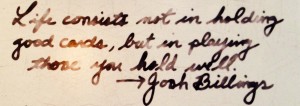 Life consists not in holding
good cards, but in playing
those you hold well.
→ Josh Billings